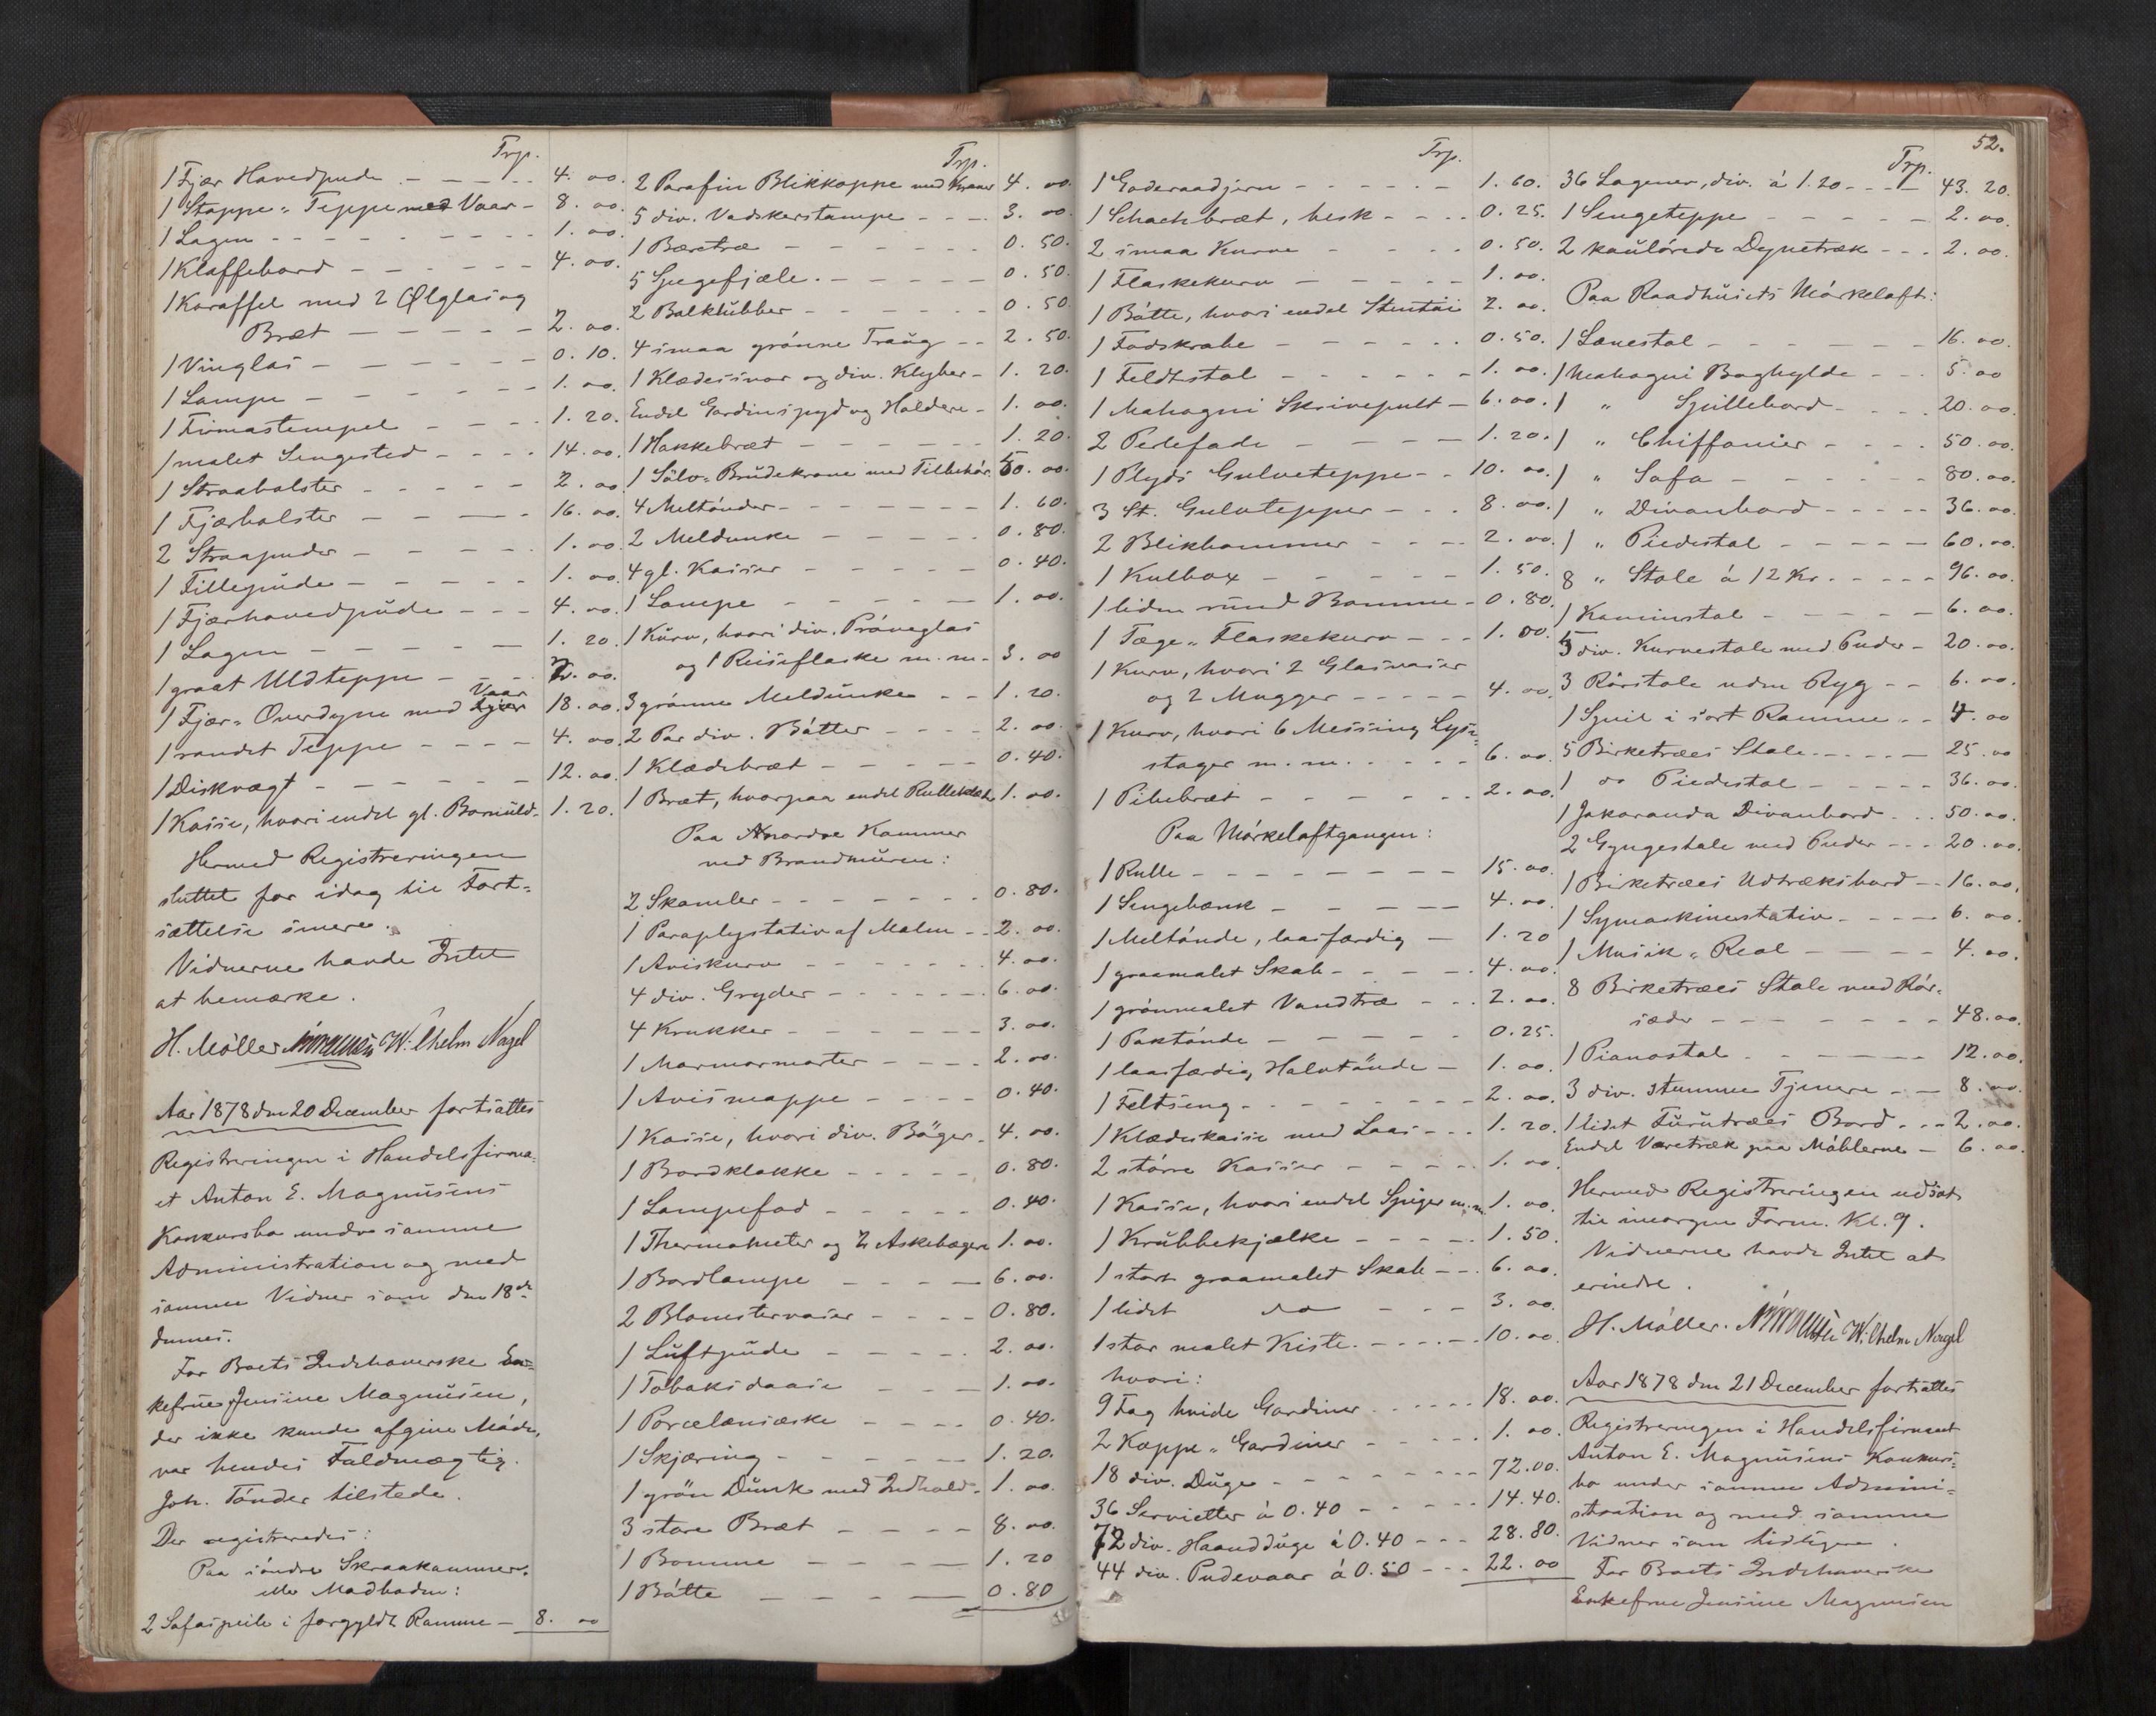 Trp.
1 Fjær Hovedpude - - - - 4. 00.
1 Stoppe- Teppe med Vaar - 8. 00.
1 Lagen - - - - 1. 00.
1 Klaffebord - - - - 4. 00.
1 Karaffel med 2 Ølglas og
Bræt - - - - 2. 00.
1 Vinglas - - - - 0. 10.
1 Lampe - - - - 1. 00.
1 Firmastempel - - - - 1. 20.
1 malet Sengested - - - - 14. 00.
1 Straabolster - - - - 2. 00.
1 Fjærbolster - - - - 16. 00.
2 Straapuder - - - - 1. 00.
1 Fillepude - - - - 1. 00.
1 Fjærhovedpude - - - 4. 00.
1 Lagen - - - - 1. 20.
1 graat Uldteppe - - - 2. 00.
1 Fjær- Overdyne med Vaar 18. 00.
1 randet Teppe - - - - 4. 00.
1 Diskvægt - - - - 12. 00.
1 Kasse, hvori endel gl. Bomuld- 1. 20.
Hermed Registreringen
sluttet for idag til Fort-
sættelse imere.
Vidnerne havde Intet
at bemærke.
H. Möller Wilhelm Nagel
Aar 1878 den 20 December fortsattes
Registreringen i Handelsfirma-
et Anton E. Magnusens
Konkursbo under samme
Administration og med
samme Vidner som den 18de
dennes.
For Boets Indehaverske En-
kefrue Jensine Magnusen,
der ikke kunde afgive Møde,
var hendes Fuldmægtig
Joh. Tönder tilstede.
Der registreredes:
Paa söndre Skraakammer
eller Madboden:
2 Sofaspeile i forgyldt Ramme - 8. 00
Trp.
2 Parafin Blikkoppe med Kraner 4. 00.
5 div. Vadskerstampe - - - 3. 00.
1 Bæretræ - - - - 0. 50.
5 Spegefjæle. - - - - 0. 50.
2 Balklubber - - - - 0. 50.
4 smaa grönne Traug - - 2. 50.
1 Klædessnor og div. Klyber - 1. 20.
Endel Gardinspyd og Holdere - 1. 00.
1 Hakkebræt - - - - 1. 20.
1 Sölv- Brudekrone med Tilbehör. 50. 00.
4 Meltönder - - - - 1. 60.
2 Meldunke - - - - 0. 80.
4 gl. Kasser - - - - 0. 40.
1 Lampe - - - - 1. 00.
1 Kurv, hvori div. Pröveglas
og 1 Reiseflaske m. m. - 3. 00
3 grönne Meldunke - - 1. 20.
2 Par div. Bötter - - - - 2. 00.
1 Klædebræt - - - - 0. 40.
1 Bræt, hvorpaa endel Rulleklæde 1. 00.
Paa nordre Kammer
ved Brandmuren:
2 Skamler - - - - 0. 80.
1 Paraplystativ af Malm - - 2. 00.
1 Aviskurv - - - - 4. 00.
4 div. Gryder - - - - 6. 00.
4 Krukker - - - - 3. 00.
1 Marmormorter - - - - 2. 00.
1 Avismappe - - - - 0. 40.
1 Kasse, hvori div. Böger - 4. 00.
1 Bordklokke - - - - 0. 80.
1 Lampefod - - - - 0. 40.
1 Thermometer og 2 Askebægere 1. 00.
1 Bordlampe - - - - 6. 00.
2 Blomstervaser - - - - 0. 80.
1 Luftpude - - - - 2. 00.
1 Tobaksdaase - - - 1. 00.
1 Porcelænsæske - - - - 0. 40.
1 Skjæring - - - - 1. 20.
1 grön Dunk med Indhold - 1. 00.
3 store Bræt - - - - 8. 00.
1 Bomme - - - - 1. 20
1 Bötte - - - - 0. 80
52.
Trp.
1 Goderaadjern - - - - 1. 60.
1 Schachbræt, besk - - - 0. 25.
2 smaa Kurve - - - - 0. 50.
1 Flaskekurv - - - - 1. 00.
1 Bötte, hvori endel Stentöi 2. 00.
1 Fodskrabe - - - - 0. 50.
1 Feldtstol - - - - 1. 00.
1 Mahogni Skrivepult - 6. 00.
2 Perlefade - - - - 1. 20.
1 Plyds Gulvteppe - - 10. 00.
3 St. Gulvtepper - - - 8. 00.
2 Blikkommer - - - - 2. 00.
1 Kulbox - - - - 1. 50.
1 liden rund Bomme - 0. 80.
1 Tæge- Flaskekurv - - - 1. 00.
1 Kurv, hvori 2 Glasvaser
og 2 Mugger - - - - 4. 00.
1 Kurv, hvori 6 Messing Lyse-
stager m. m. - - - - 6. 00.
1 Pibebræt - - - - 2. 00.
Paa Mörkeloftgangen:
1 Rulle - - - - 15. 00.
1 Sengebænk - - - - 4. 00.
1 Meltönde, laasfærdig - 1. 20
1 graamalet Skab - - - - 4. 00.
1 grönmalet Vandtræ - - - 2. 00.
1 Paktönde - - - - 0. 25.
1 laasfærdig Halvtönde - 1. 00.
1 Feltseng - - - - 2. 00.
1 Klædeskasse med Laas - - - 1. 20.
2 större Kasser - - - - 1. 00.
1 Kasse, hvori endel Spiger m. m. 1. 00.
1 Krubbekjælke - - - - 1. 50.
1 stort graamalet Skab - - 6. 00.
1 lidet do - - - 3. 00.
1 stor malet Kiste. - - - - 10. 00.
hvori:
9 Fag hvide Gardiner - - - - 18. 00.
2 Kappe- Gardiner - - - - 1. 00.
18 div. Duge - - - - 72. 00.
36 Servietter à 0. 40 - - - - 14. 40.
72 div. Haandduge à 0. 40 - - - 28. 80.
44 div. Pudevaar à 0. 50 - - - 22. 00
Trp.
36 Lagener, div. á 1. 20 - - - - 43. 20.
1 Sengeteppe - - - - 2. 00.
2 kaulörede Dynetræk - - - 2. 00.
Paa Raadhusets Mörkeloft:
1 Lænestol - - - - 16. 00.
1 Mahogni Boghylde - - - 5. 00
1 " Spillebord - - - - 20. 00.
1 " Chiffonier - - - - 50. 00.
1 " Sofa - - - - 80. 00.
1 " Divanbord - - - - 36. 00.
1 " Piedestal - - - - 60. 00.
8 " Stole á 12 Kr. - - - - 96. 00.
1 Kaminstol - - - - 6. 00.
5 div. Kurvestole med Puder - 20. 00.
3 Rörstole uden Ryg - - 6. 00.
1 Speil i sort Ramme - - 4. 00
5 Birketræes Stole - - - - 25. 00
1 do Piedestal - - - - 36. 00.
1 Jakaranda Divanbord - - - 50. 00.
2 Gyngestole med Puder - - - 20. 00.
1 Birketræes Udtræksbord - - 16. 00.
1 Symaskinestativ - - - - 6. 00.
1 Musik- Reol - - - - 4. 00.
8 Birketræes Stole med Rör-
sæder - - - - 48. 00.
1 Pianostol - - - - 12. 00.
3 div. stumme Tjenere - - 8. 00.
1 lidet Furutræes Bord - - - 2. 00.
Endel Varetræk paa Möblerne - 6. 00.
Hermed Registreringen udsat
til imorgen Form. Kl. 9.
Vidnerne havde Intet at
erindre.
H. Möller. Wilhelm Nagel
Aar 1878 den 21 December fortsattes
Registreringen i Handelsfirmaet
Anton E. Magnusens Konkurs-
bo under samme Admini-
stration og med samme
Vidner som tidligere.
For Boets Indehaverske
Enkefrue Jensine Magnusen